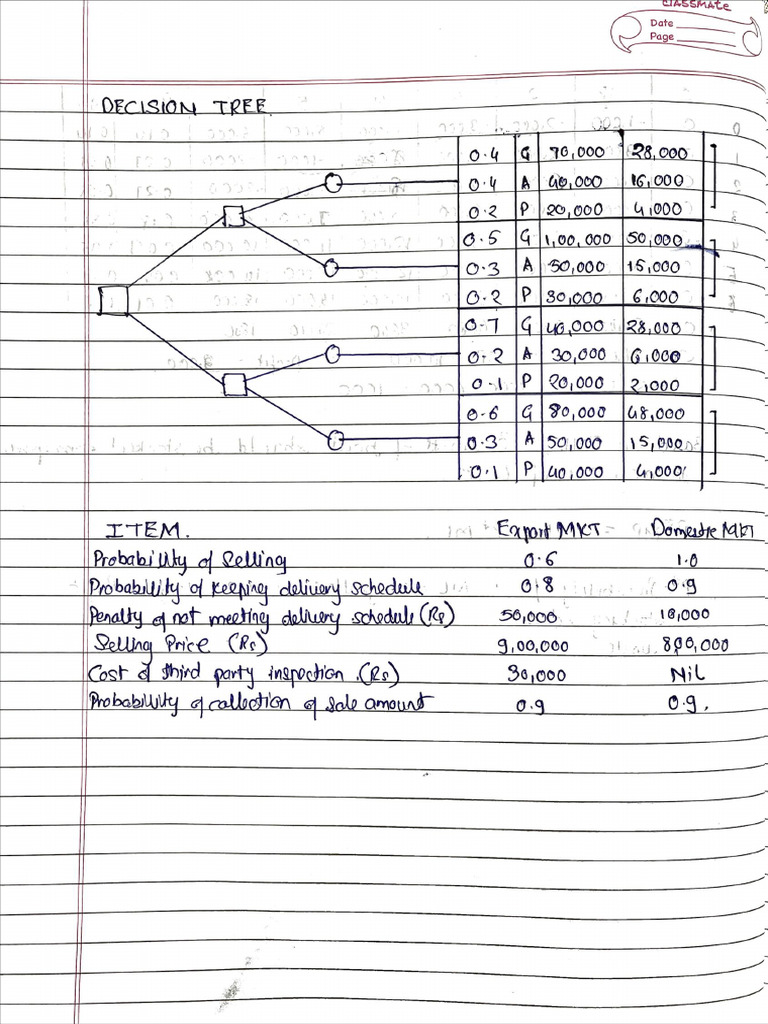 CLASSMATE
Date
Page
DECISION TREE.
0.4 G 70,000 28,000
0.4 A 40,000 16,000
0.2 P 20,000 4,000
0.5 G 1,00,000 50,000
0.3 A 50,000 15,000
0.2 P 30,000 6,000
0.7 G 40,000 28,000
0.2 A 30,000 6,000
0.1 P 20,000 2,000
0.6 G 80,000 48,000
0.3 A 50,000 15,000
0.1 P 40,000 4,000
ITEM. Export MKT Domestic MKT
Probability of Selling 0.6 1.0
Probability of keeping delivery schedule 0.8 0.9
Penalty of not meeting delivery schedule (Rs) 50,000 10,000
Selling Price (Rs) 9,00,000 8,00,000
Cost of third party inspection.(Rs) 30,000 Nil
Probability of collection of sale amount 0.9 0.9.